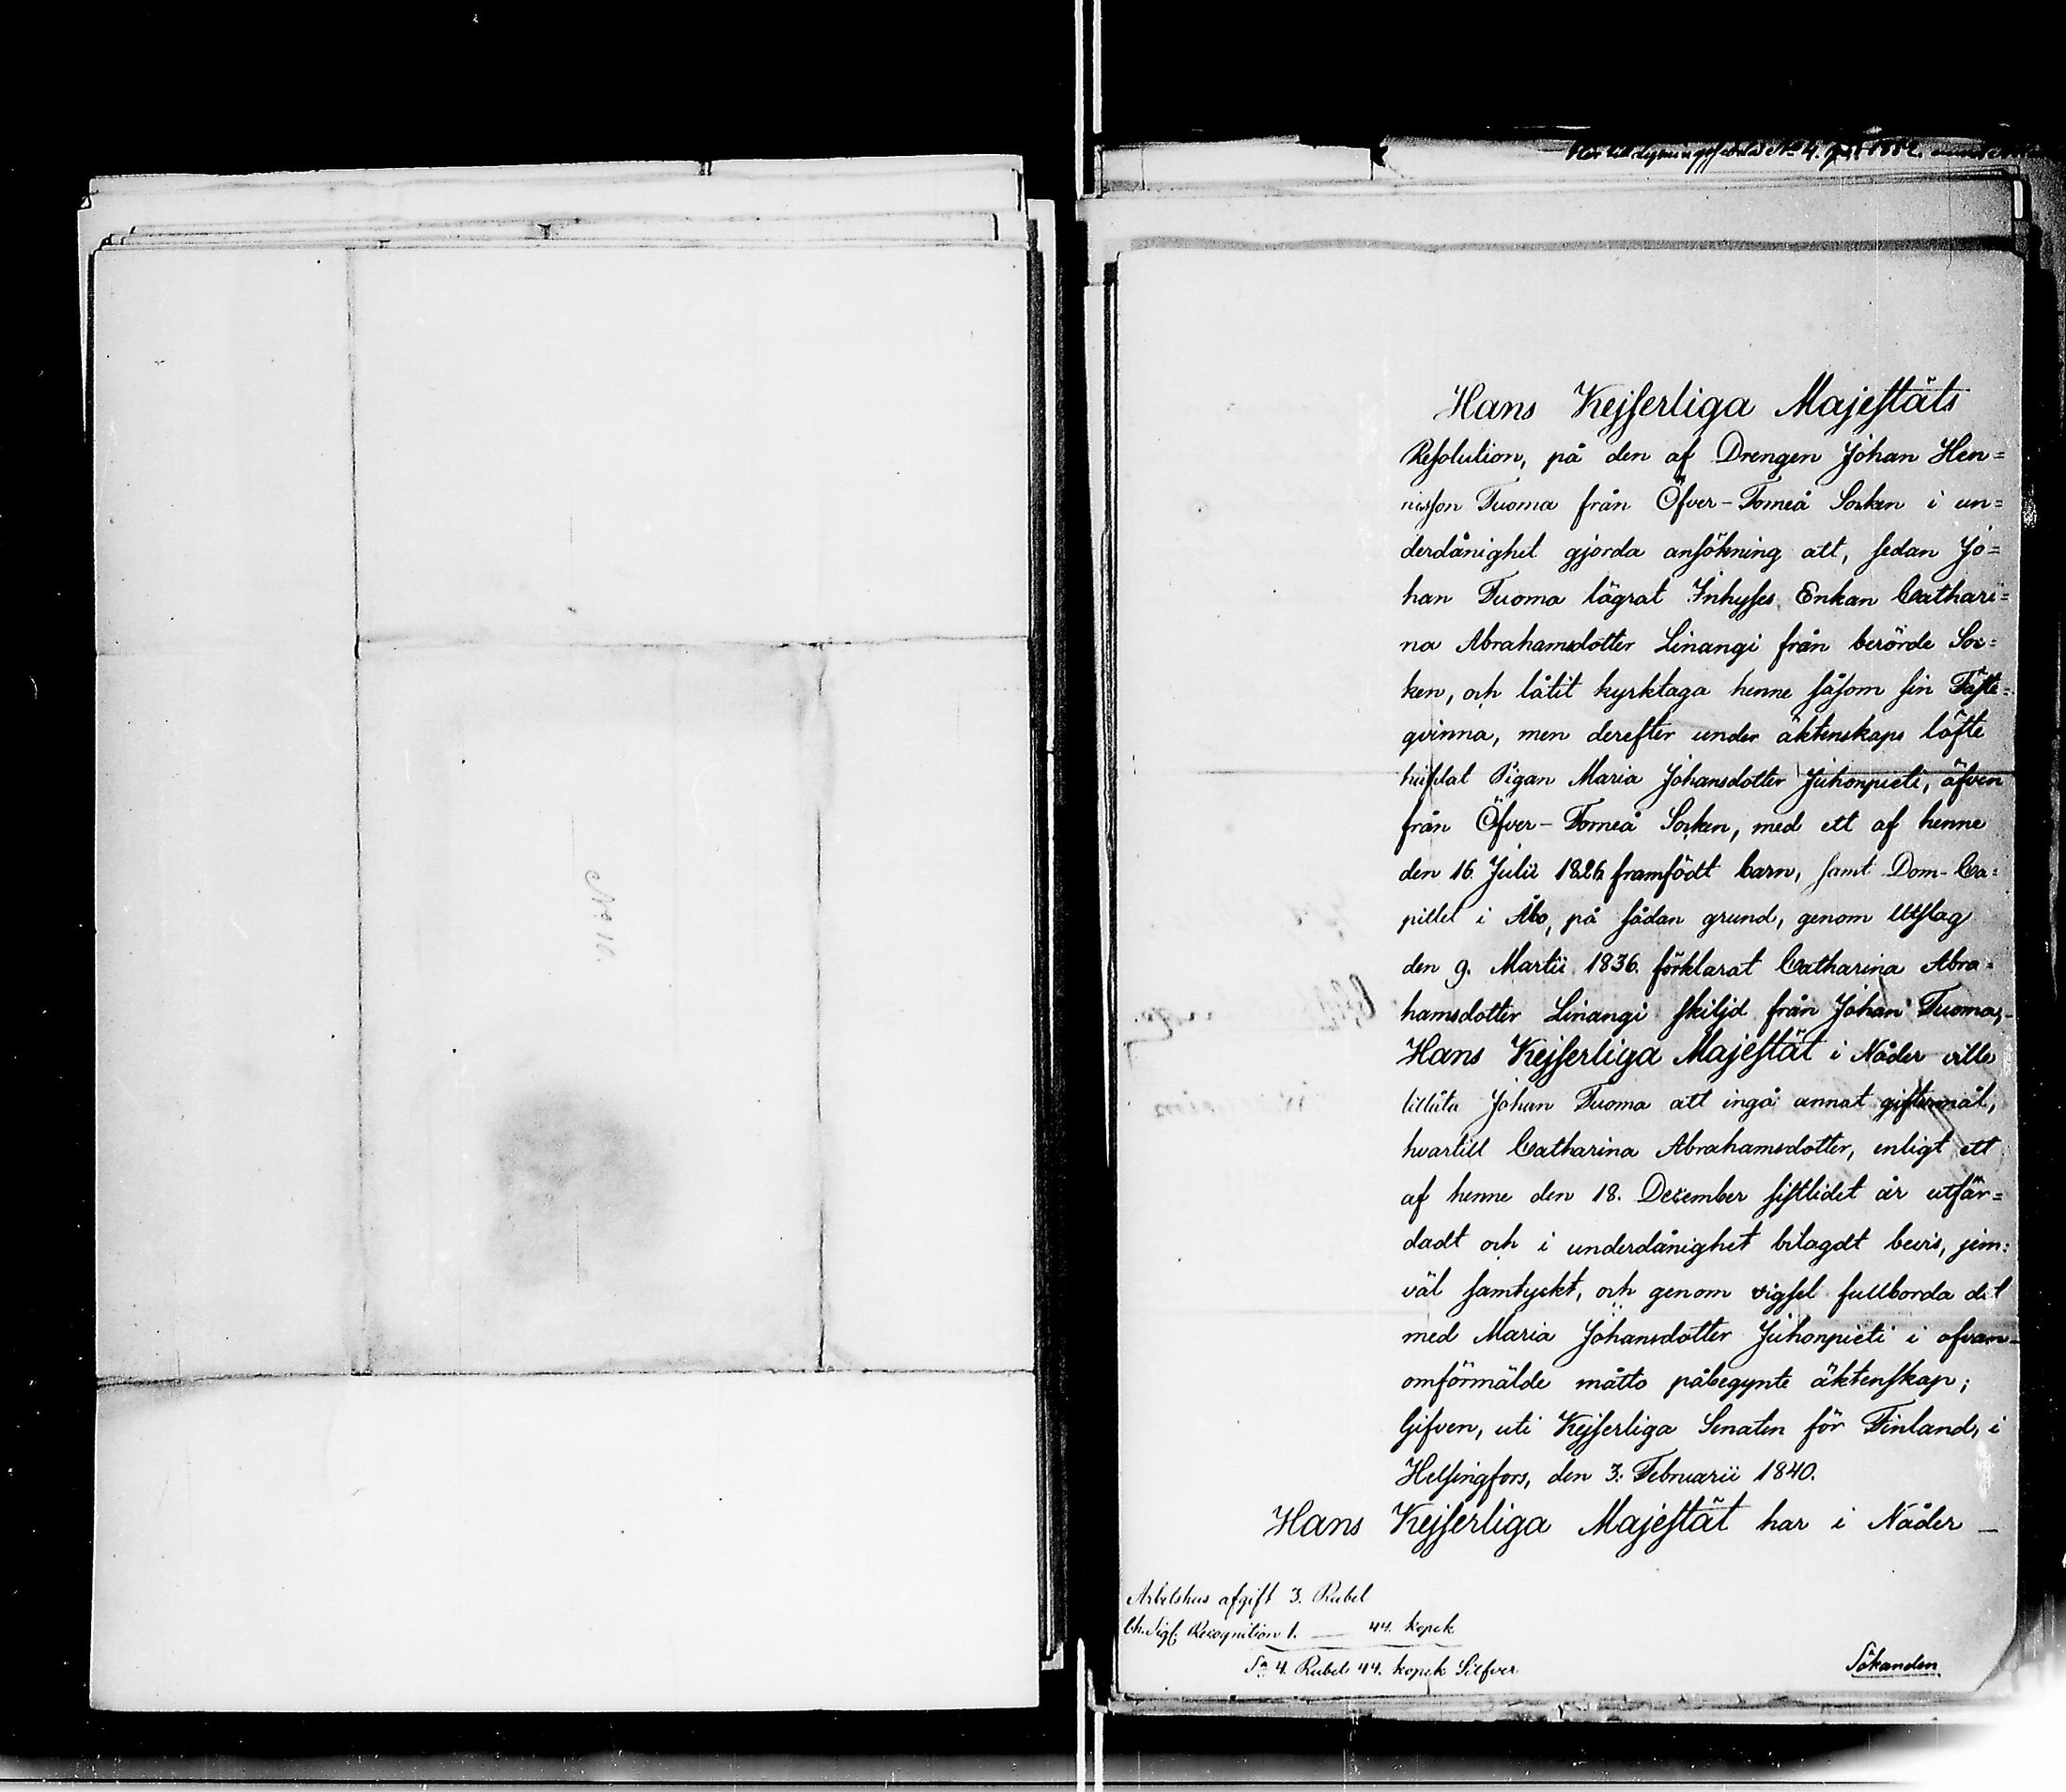 No 16.
Hans Kejserliga Majestäts
Resolution, på den af Drengen Johan Hen=
riksson Tuoma från Öfver-Torneå Socken i un=
derdånighet gjorda ansökning att, sedan Jo=
han Tuoma lägrat Inhyses Enkan Cathari=
na Abrahamsdotter Linangi från berörde Soc=
ken, och låtit kyrktaga henne såsom sin Fäste=
qvinna, men derefter under äktenskaps löfte
häfdat Pigan Maria Johansdotter Juhonpieti, äfven
från Öfver-Torneå Socken, med ett af henne
den 16 Julii 1826 framfödt barn, samt Dom-Ca=
pitlet i Åbo, på sådan grund, genom Utslag
den 9. Martii 1836. förklarat Catharina Abra=
hamsdotter Linangi skiljd från Johan Tuoma,
Hans Kejserliga Majestät i Nåder ville
tillåta Johan Tuoma att ingå annat giftermål,
hvartill Catharina Abrahamsdotter, enligt ett
af henne den 18. December sistlidet år utfär=
dadt och i underdånighet bilagdt bevis, jem=
väl samtyckt, och genom vigsel fullborda det
med Maria Johansdotter Juhonpieti i ofvan=
omförmälde måtto påbegynte äktenskap;
Gifven, uti Kejserliga Senaten för Finland, i
Helsingfors, den 3: Februarii 1840.
Hans Kejserliga Majestät har i Nåder —
Arbetshus afgift 3. Rubel
Ch. Sigl. Recognition 1. — 44. kopek
Sa 4. Rubel 44. kopek Silfver
Sökanden